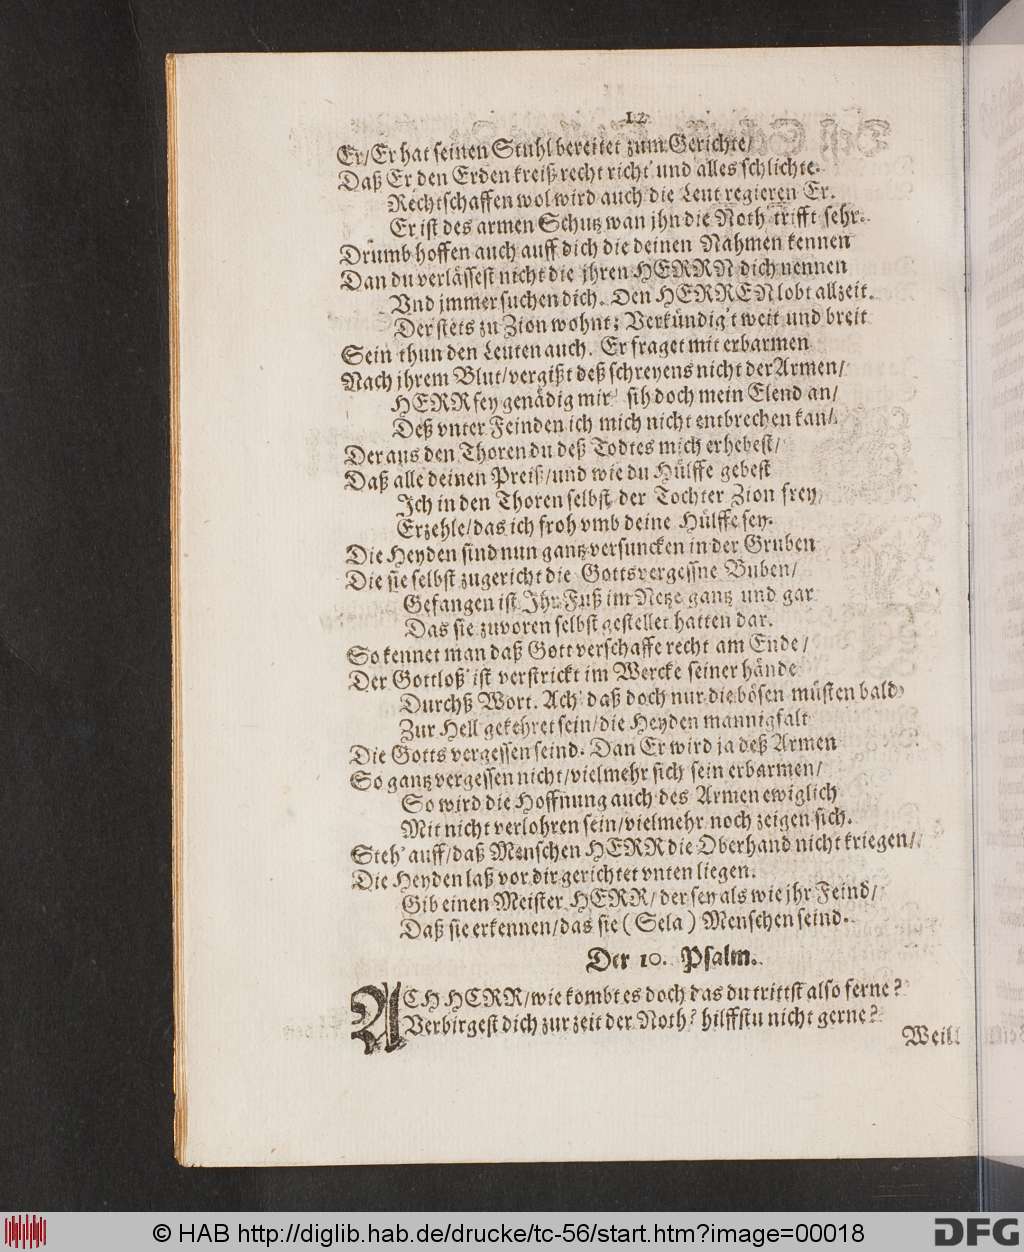 12
Er/Er hat seinen Stuhl bereitet zum Gerichte/
Daß Er den Erden kreiß recht richt' und alles schlichte.
Rechtschaffen wol wird auch die Leut regieren Er.
Er ist des armen Schutz wan jhn die Noth trifft sehr.
Drümb hoffen auch auff dich die deinen Nahmen kennen
Dan du verlässest nicht die jhren HERRN dich nennen
Vnd jmmer suchen dich. Den HERREN lobt allzeit.
Der stets zu Zion wohnt; Verkündig't weit und breit
Sein thun den Leuten auch. Er fraget mit erbarmen
Nach jhrem Blut/vergißt deß schreyens nicht der Armen/
HERR sey genädig mir/ sih doch mein Elend an/
Deß vnter Feinden ich mich nicht entbrechen kan/
Der aus den Thoren du deß Todtes mich erhebest/
Daß alle deinen Preiß/und wie du Hülffe gebest
Ich in den Thoren selbst der Tochter Zion frey
Erzehle/das ich froh vmb deine Hülffe sey.
Die Heyden sind nun gantz versuncken in der Gruben
Die sie selbst zugericht die Gottsvergeßne Buben/
Gefangen ist Ihr Fuß im Netze gantz und gar
Das sie zuvoren selbst gestellet hatten dar.
So kennet man daß Gott verschaffe recht am Ende/
Der Gottloß' ist verstrickt im Wercke seiner hände
Durchß Wort. Ach' daß doch nur die bösen müsten bald
Zur Hell gekehret sein/die Heyden mannigfalt
Die Gotts vergessen seind. Dan Er wird ja deß Armen
So gantz vergessen nicht/vielmehr sich sein erbarmen/
So wird die Hoffnung auch des Armen ewiglich
Mit nicht verlohren sein/vielmehr noch zeigen sich.
Steh' auff/daß Menschen HERR die Oberhand nicht kriegen/
Die Heyden laß vor dir gerichtet vnten liegen.
Gib einen Meister HERR/ der sey als wie jhr Feind/
Daß sie erkennen/das sie (Sela) Menschen seind.
Der 10. Psalm.
ACH HERR/wie kombt es doch das du trittst also ferne?
Verbirgest dich zur zeit der Noth? hilffstu nicht gerne?
Weill
© HAB http://diglib.hab.de/drucke/tc-56/start.htm?image=00018
DFG